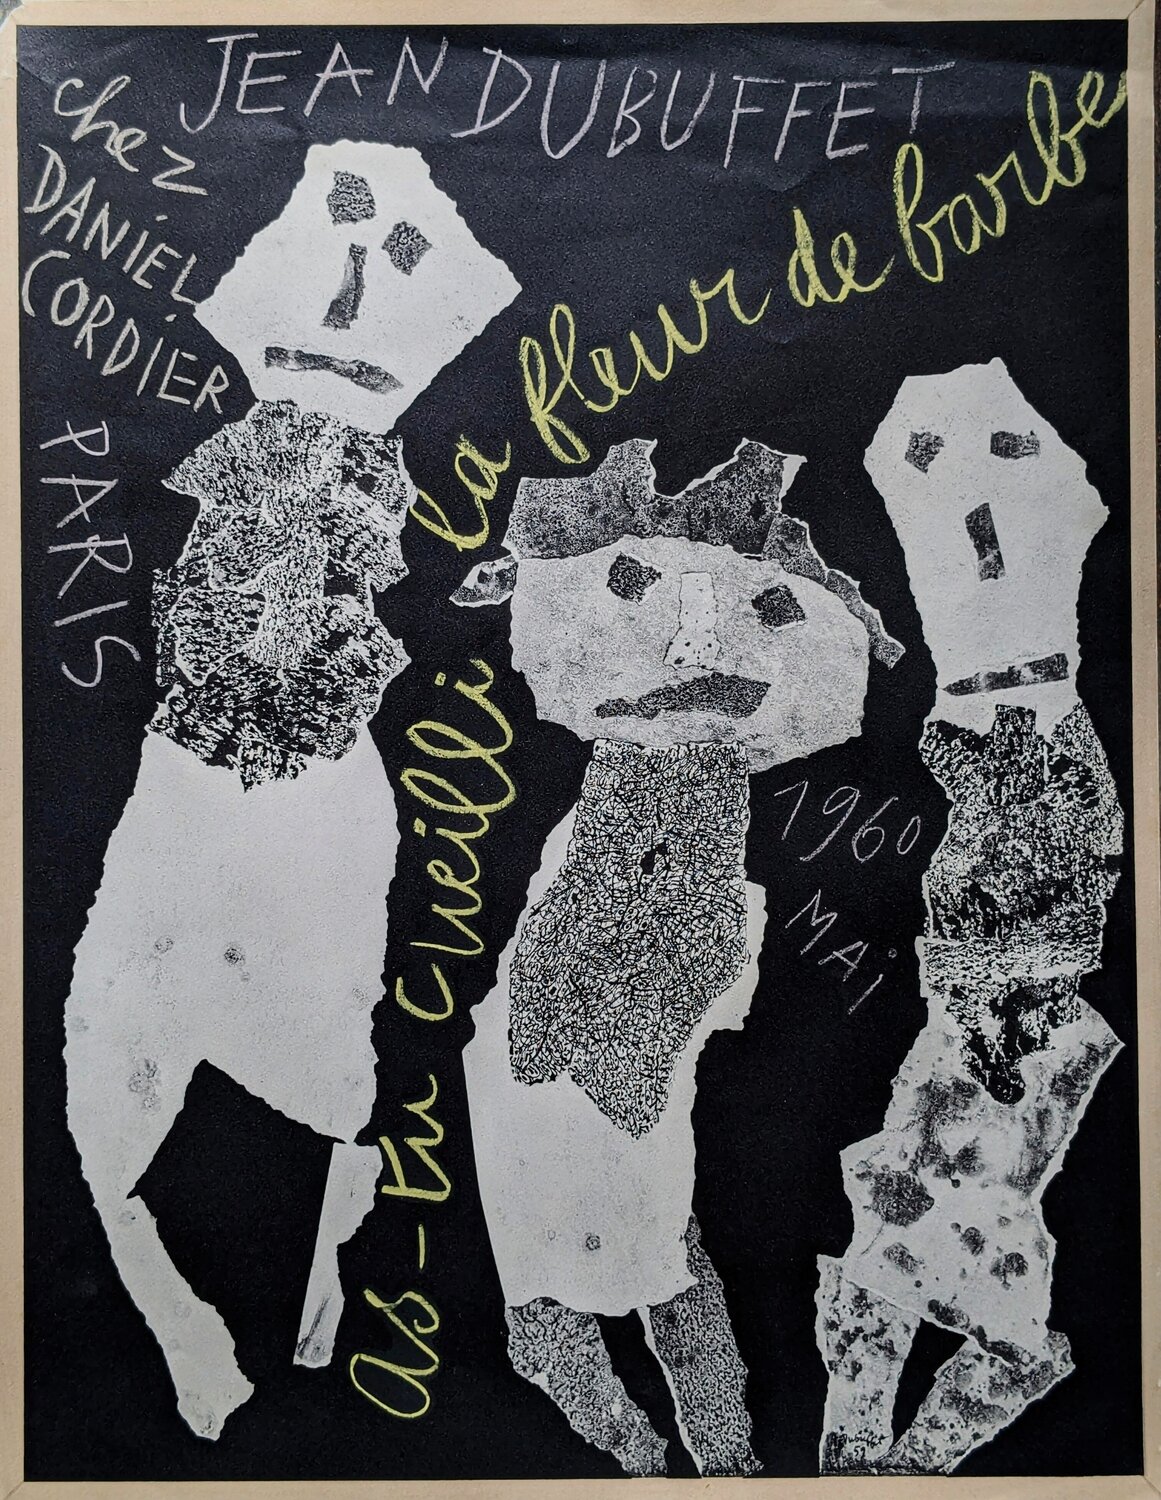 JEAN DUBUFFET
chez
DANIEL
CORDIER
PARIS
as-tu cueilli la fleur de barbe
1960
MAI
Dubuffet
59